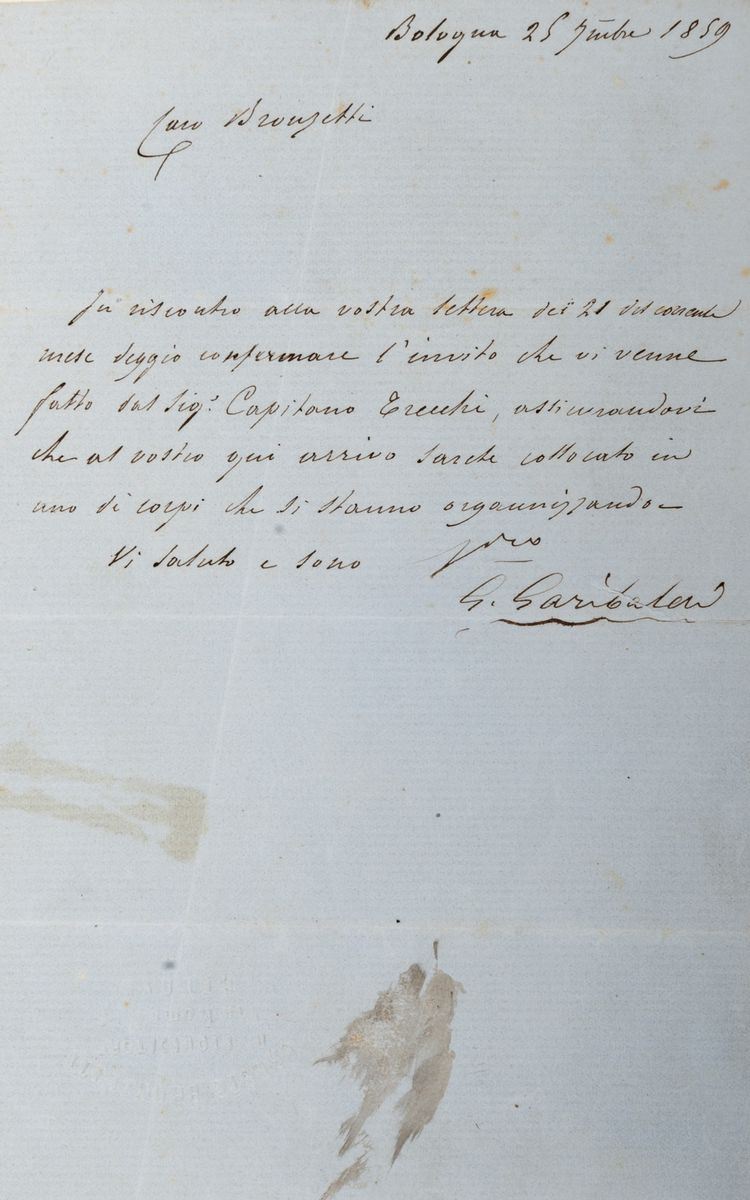 Bologna 25 7mbre 1859
Caro Bronzetti
In riscontro alla vostra lettera del 21 del corrente
mese deggio confermare l'invito che vi venne
fatto dal Sigr. Capitano Trecchi, assicurandovi
che al vostro qui arrivo sarete collocato in
uno di corpi che si stanno organnizzando
Vi saluto e sono
G. Garibaldi